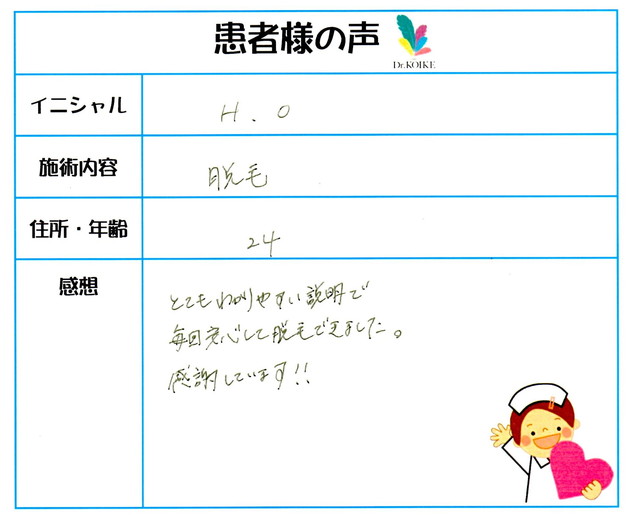 患者様の声
Dr.KOIKE
イニシャル
H.O
施術内容
脱毛
住所・年齢
24
感想
とてもわかりやすい説明で
毎回安心して脱毛できました。
感謝しています!!